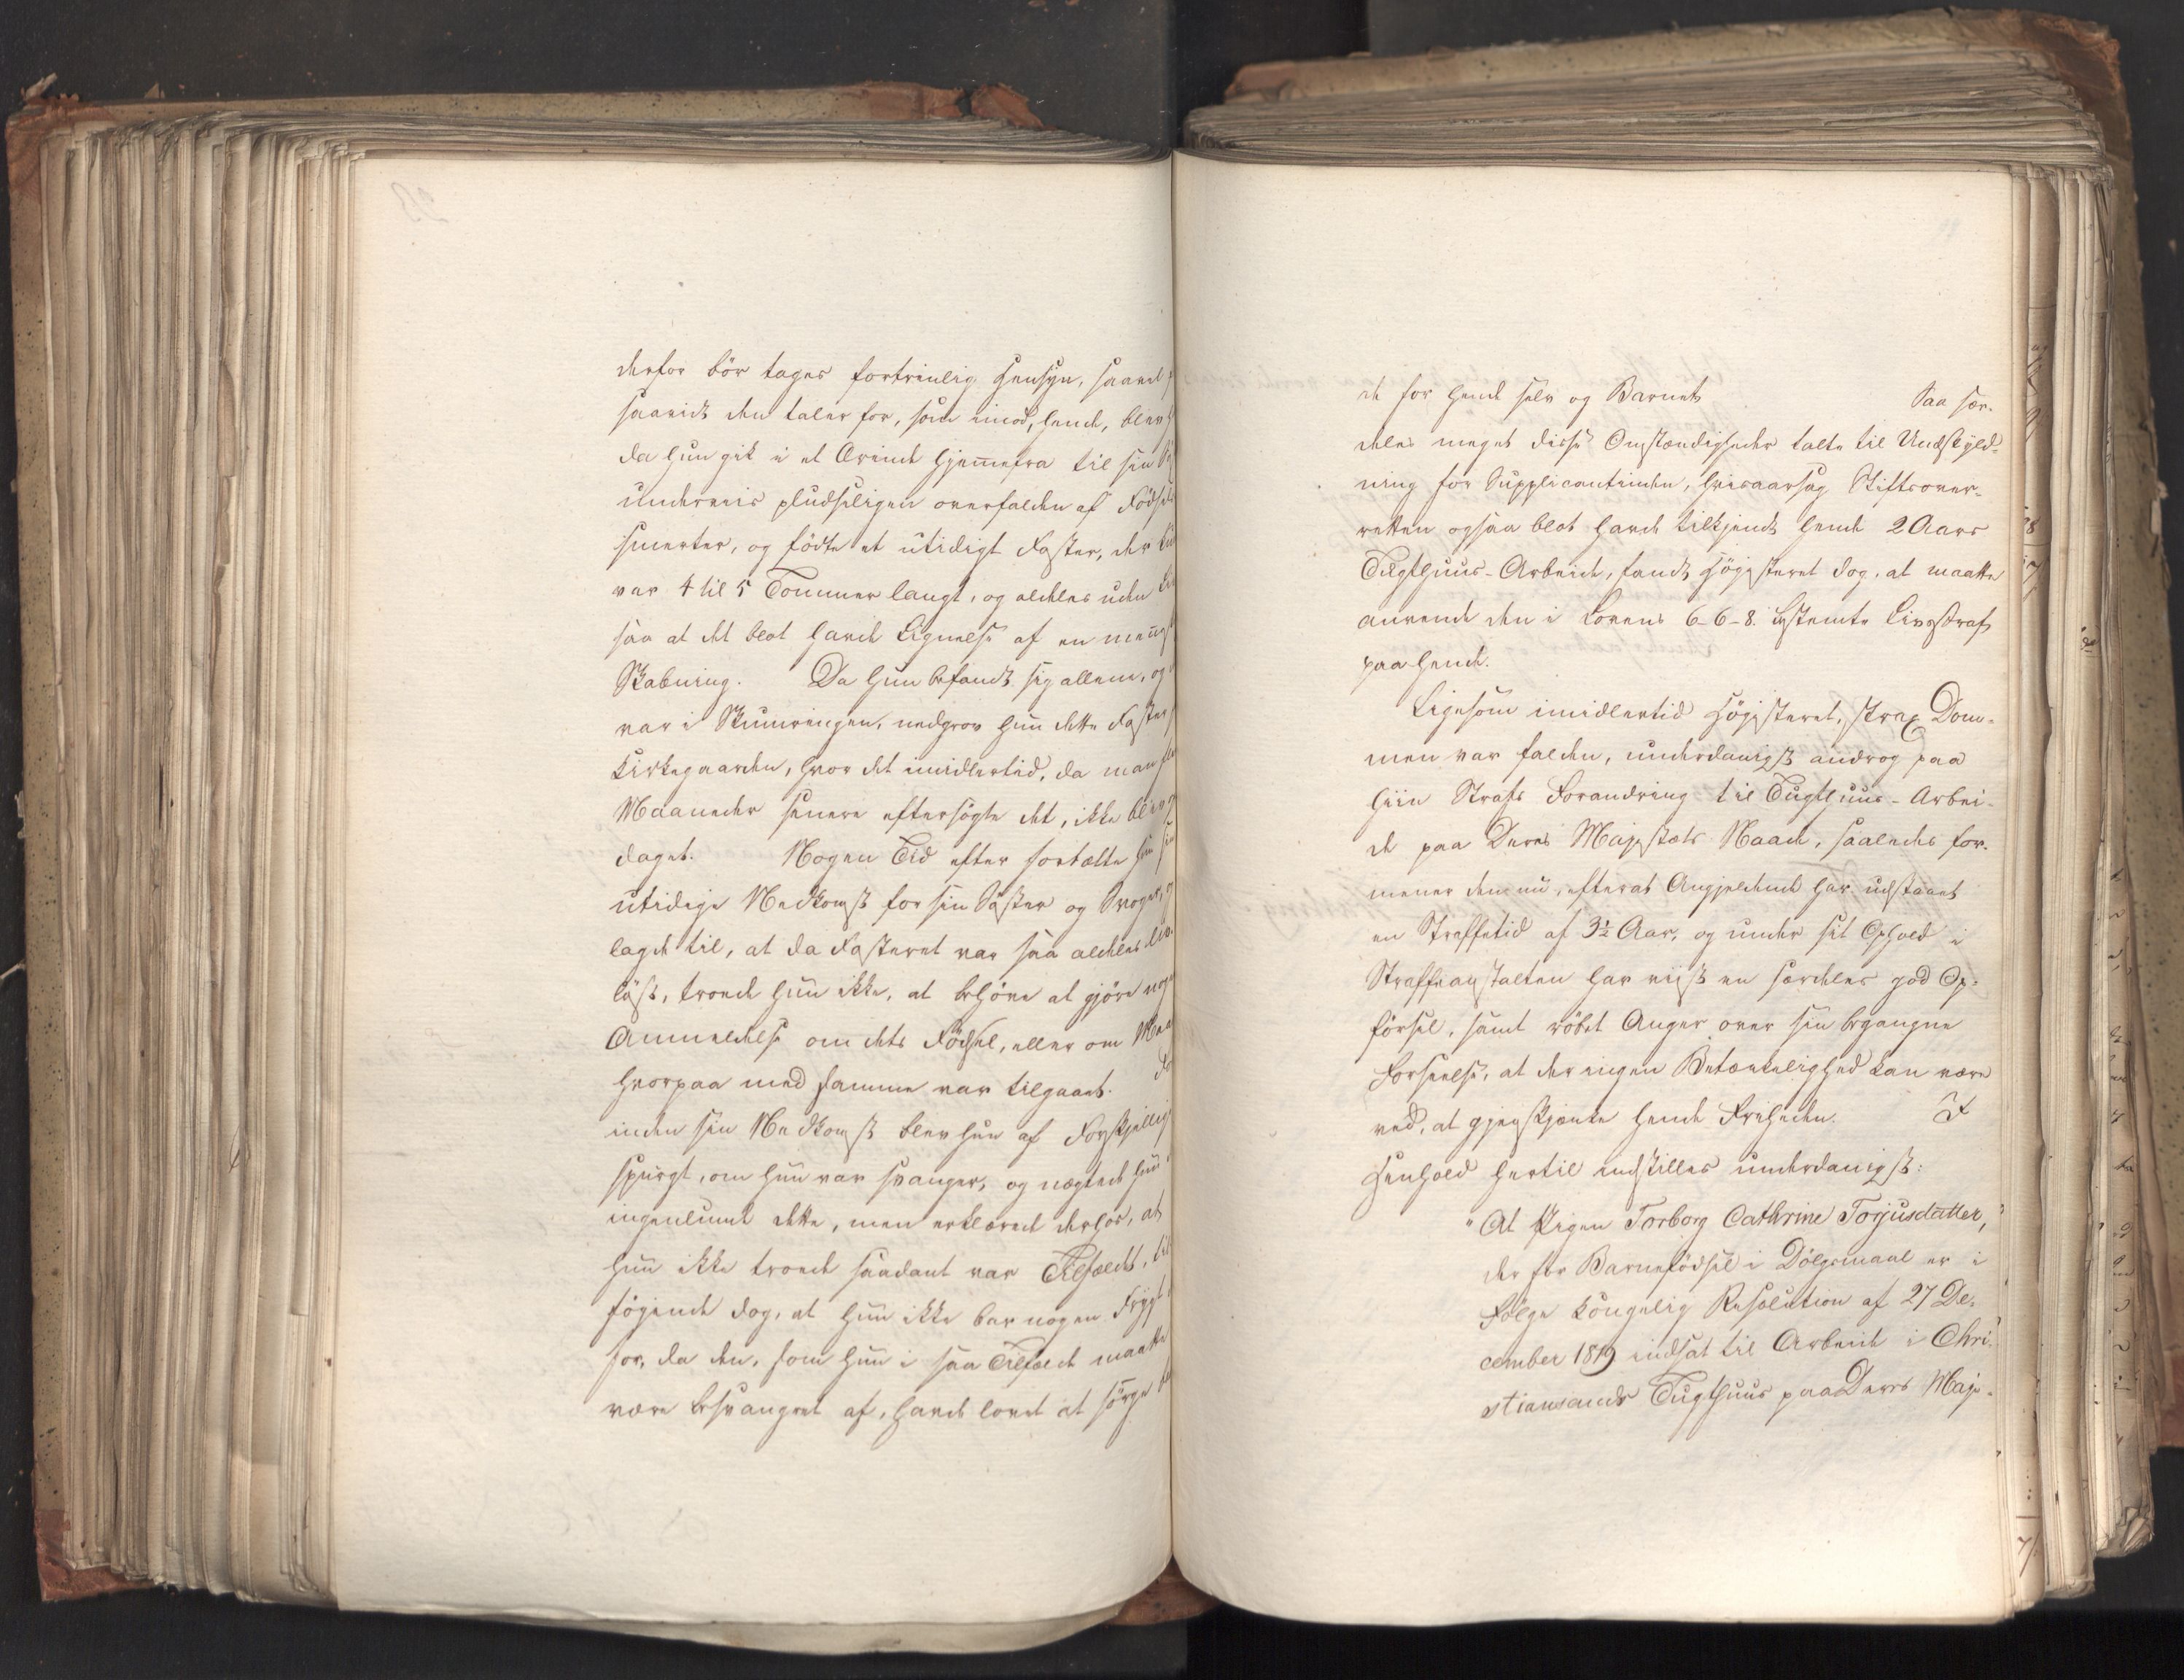 derfor bör tages fortrinlig Hensyn, saavel
saavidt den taler for, som imod, hende, blev
da hun gik i et Ærinde hjemmefra til sin
underveis pludseligen overfalden af Födsels
smerter, og födte et utidigt Foster, der
var 4 til 5 Tommer langt, og aldeles uden
saa at det blot havde Lignelse af en mennesk
Skabning. Da hun befandt sig allene, og
var i Skumringen, nedgrov hun dette Foster
Kirkegaarden, hvor det imidlertid, da man
Maaneder senere eftersögte det, ikke blev
daget. Nogen Tid efter fortalte hun sin
utidige Nedkomst for sin Söster og Svoger,
lagde til, at da Fosteret var saa aldeles
löst, troede hun ikke, at behöve at gjöre
Anmeldelse om dets Födsel, eller om
hvorpaa med samme var tilgaaet.
inden sin Nedkomst blev hun af Forskjellig
spurgt, om hun var svanger, og nægtede hun
ingenlunde dette, men erklærede derhos, at
hun ikke troede saadant var Tilfældet, til
föiende dog, at hun ikke bar nogen Frygt
for, da den, som hun i saa Tilfælde maatte
være besvangret af, havde lovet at sörge
de for hende selv og Barnet Saa sær-
deles meget disse Omstændigheder talte til Undskyld-
ning for Supplicantinden, hvisaarsag Stiftsover-
retten ogsaa blot havde tilkjendt hende 2 Aars
Tugthuus-Arbeide, fandt Höiesteret dog, at maatte
anvende den i Lovens 6-6-8. bestemte Livsstraf
paa hende.
Ligesom imidlertid Höiesteret, strax Dom-
men var falden, underdanigst androg paa
hiin Strafs Forandring til Tugthuus-Arbei-
de paa Deres Majestæts Naade, saaledes for-
mener den nu, efterat Angjeldende har udstaaet
en Straffetid af 3½ Aar, og under sit Ophold i
Straffeanstalten har viist en særdeles god Op-
försel, samt röbet Anger over sin begangne
Forseelse, at der ingen Betænkelighed kan være
ved, at gjenskjænke hende Friheden. I
Henhold hertil indstilles underdanigst:
"At Pigen Torborg Cathrine Torjusdatter,
der for Barnefödsel i Dölgsmaal er i
Fölge Kongelig Resolution af 27 De-
cember 1819 indsat til Arbeide i Chri-
stiansands Tugthuus paa Deres Maje-